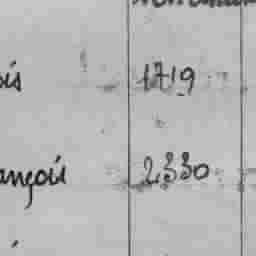 ois 1719
ançois 2330